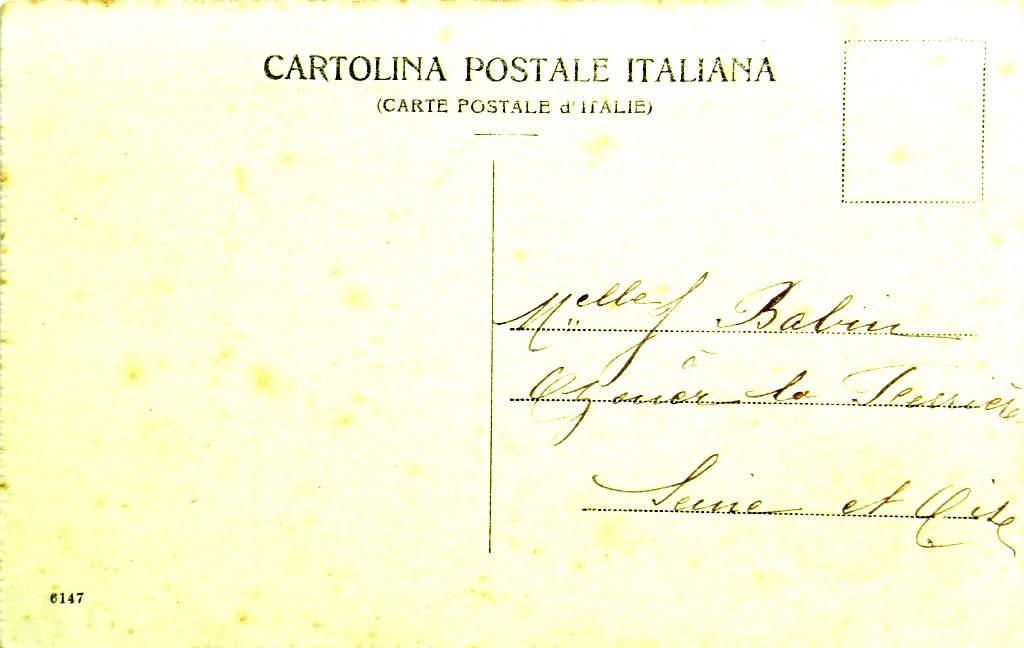 CARTOLINA POSTALE ITALIANA
(CARTE POSTALE d'ITALIE)
Melle Babin
à
Ozouer la Ferrière
Seine et Oise
6147